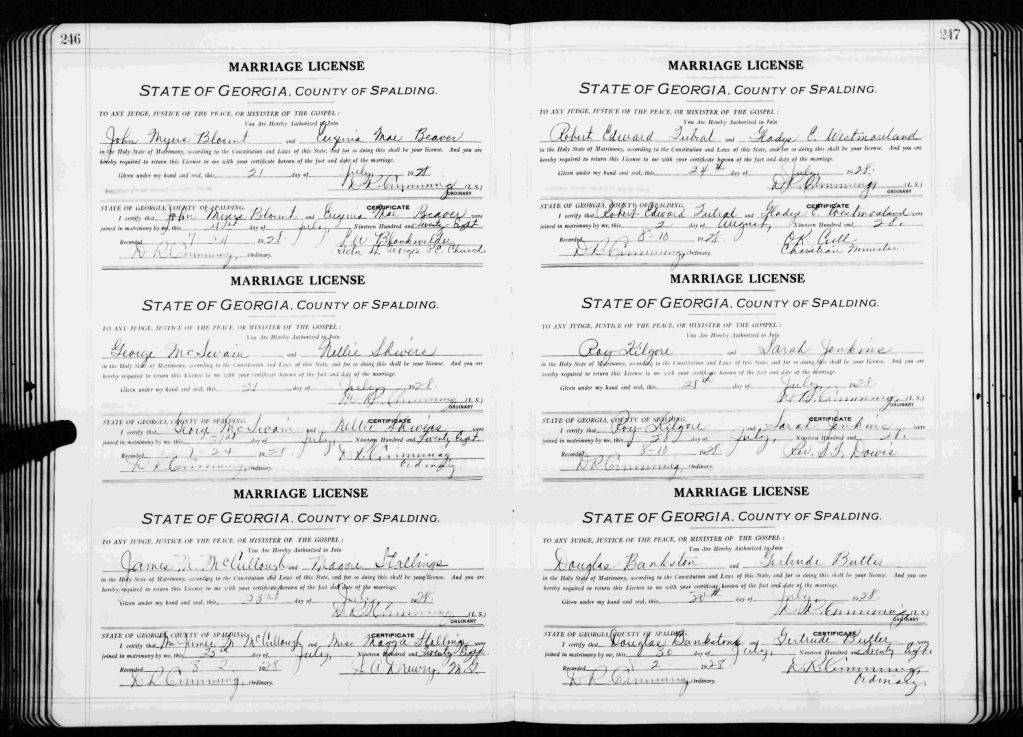 246
MARRIAGE LICENSE
STATE OF GEORGIA, COUNTY OF SPALDING.
TO ANY JUDGE, JUSTICE OF THE PEACE, OR MINISTER OF THE GOSPEL:
You Are Hereby Authorized to Join
John Myers Blount and Eugenia Mae Beaver
in the Holy State of Matrimony, according to the Constitution and Laws of this State, and for so doing this shall be your license. And you are
hereby required to return this License to me with your certificate hereon of the fact and date of the marriage.
Given under my hand and seal, this 21 day of July 1928
D. R. Cumming (L. S.)
ORDINARY
STATE OF GEORGIA, COUNTY OF SPALDING. CERTIFICATE
I certify that John Myers Blount and Eugenia Mae Beaver were
joined in matrimony by me, this 21st day of July, Nineteen Hundred and twenty Eight
Recorded 7 24 1928
D. R. Cumming, Ordinary. St. George's P. E. Church
MARRIAGE LICENSE
STATE OF GEORGIA, COUNTY OF SPALDING.
TO ANY JUDGE, JUSTICE OF THE PEACE, OR MINISTER OF THE GOSPEL:
You Are Hereby Authorized to Join
George McSwain and Nellie Shivers
in the Holy State of Matrimony, according to the Constitution and Laws of this State, and for so doing this shall be your license. And you are
hereby required to return this License to me with your certificate hereon of the fact and date of the marriage.
Given under my hand and seal, this 21 day of July 1928.
D. R. Cumming (L. S.)
ORDINARY
STATE OF GEORGIA, COUNTY OF SPALDING. CERTIFICATE
I certify that George McSwain and Nellie Shivers were
joined in matrimony by me, this 21st day of July, Nineteen Hundred and twenty Eight
Recorded 7 24 1928 D. R. Cumming
D. R. Cumming, Ordinary. Ordinary.
MARRIAGE LICENSE
STATE OF GEORGIA, COUNTY OF SPALDING.
TO ANY JUDGE, JUSTICE OF THE PEACE, OR MINISTER OF THE GOSPEL:
You Are Hereby Authorized to Join
James M. McCullough and Maggie Stallings
in the Holy State of Matrimony, according to the Constitution and Laws of this State, and for so doing this shall be your license. And you are
hereby required to return this License to me with your certificate hereon of the fact and date of the marriage.
Given under my hand and seal, this day of 1928.
D. R. Cumming (L. S.)
ORDINARY
STATE OF GEORGIA, COUNTY OF SPALDING. CERTIFICATE
I certify that M. McCullough and Miss Maggie Stallings were
joined in matrimony by me, this day of July, Nineteen Hundred and twenty Eight
Recorded 8 2 1928. A. Drewry, M.G.
D. R. Cumming, Ordinary.
247
MARRIAGE LICENSE
STATE OF GEORGIA, COUNTY OF SPALDING.
TO ANY JUDGE, JUSTICE OF THE PEACE, OR MINISTER OF THE GOSPEL:
You Are Hereby Authorized to Join
Robert Edward Futral and Gladys E. Westmoreland
in the Holy State of Matrimony, according to the Constitution and Laws of this State, and for so doing this shall be your license. And you are
hereby required to return this License to me with your certificate hereon of the fact and date of the marriage.
Given under my hand and seal, this 24th day of July 1928.
D. R. Cumming (L. S.)
ORDINARY
STATE OF GEORGIA, COUNTY OF SPALDING. CERTIFICATE
I certify that Robert Edward Futral and Gladys E. Westmoreland were
joined in matrimony by me, this 2 day of August, Nineteen Hundred and 28.
Recorded 8-10 1928
D. R. Cumming, Ordinary. Christian Minister.
MARRIAGE LICENSE
STATE OF GEORGIA, COUNTY OF SPALDING.
TO ANY JUDGE, JUSTICE OF THE PEACE, OR MINISTER OF THE GOSPEL:
You Are Hereby Authorized to Join
Roy Kilgore and Sarah Jenkins
in the Holy State of Matrimony, according to the Constitution and Laws of this State, and for so doing this shall be your license. And you are
hereby required to return this License to me with your certificate hereon of the fact and date of the marriage.
Given under my hand and seal, this 28th day of July, 1928.
D. R. Cumming (L. S.)
ORDINARY
STATE OF GEORGIA, COUNTY OF SPALDING. CERTIFICATE
I certify that Roy Kilgore and Sarah Jenkins were
joined in matrimony by me, this 28 day of July, Nineteen Hundred and
Recorded 8-10 1928 Rev. S. F. Dowis
D. R. Cumming, Ordinary.
MARRIAGE LICENSE
STATE OF GEORGIA, COUNTY OF SPALDING.
TO ANY JUDGE, JUSTICE OF THE PEACE, OR MINISTER OF THE GOSPEL:
You Are Hereby Authorized to Join
Douglas Bankston and Gertrude Butler
in the Holy State of Matrimony, according to the Constitution and Laws of this State, and for so doing this shall be your license. And you are
hereby required to return this License to me with your certificate hereon of the fact and date of the marriage.
Given under my hand and seal, this 30th day of July 1928.
D. R. Cumming (L. S.)
ORDINARY
STATE OF GEORGIA, COUNTY OF SPALDING. CERTIFICATE
I certify that Douglas Bankston and Gertrude Butler were
joined in matrimony by me, this 30 day of July, Nineteen Hundred and twenty Eight.
Recorded 8 2 1928 D. R. Cumming
D. R. Cumming, Ordinary. Ordinary.